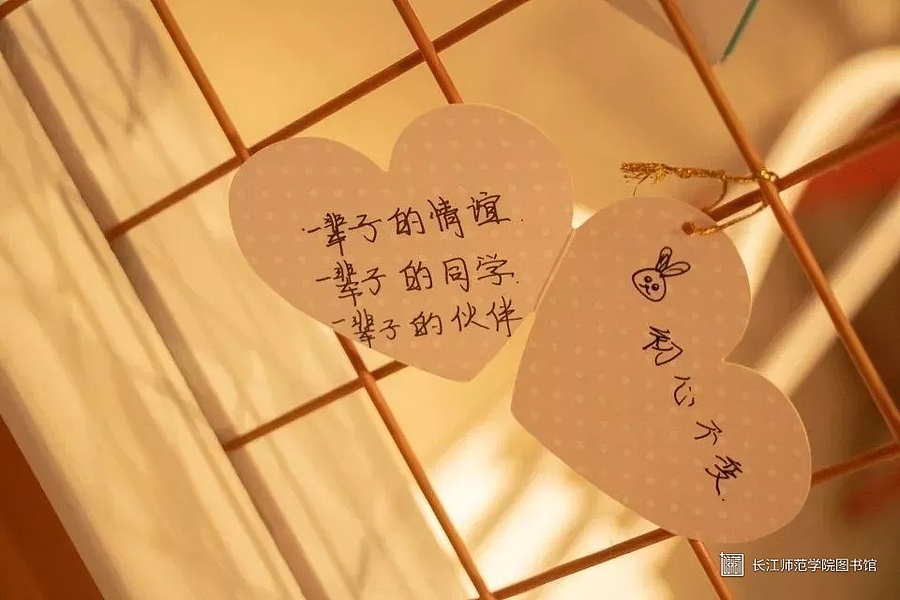 一辈子的情谊.
一辈子的同学.
一辈子的伙伴
初心不变.
长江师范学院图书馆